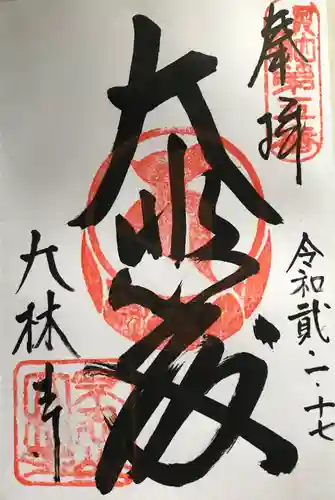 奉拝
大悲殿
令和貳・一・十七
大林寺